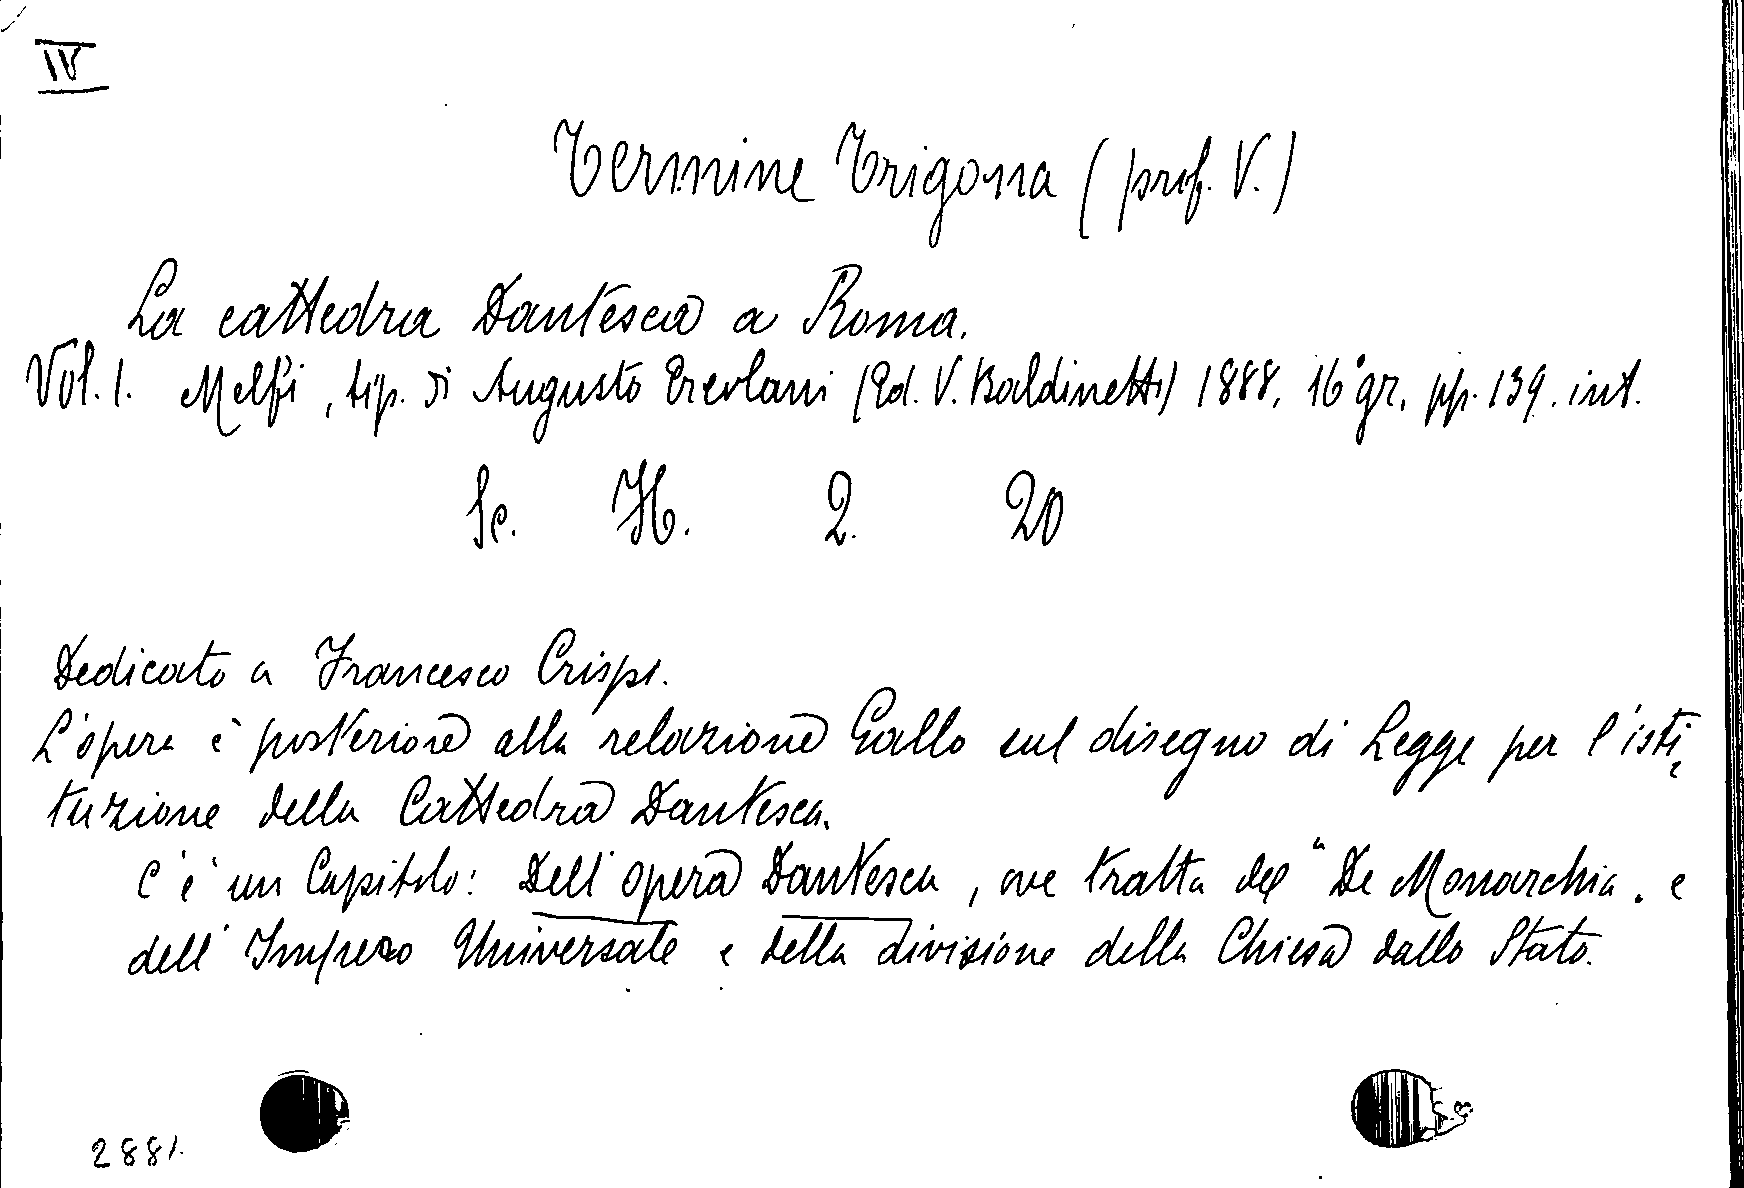 IV
Termine Trigona (prof. V.)
La cattedra Dantesca a Roma.
Vol. I. Melfi, tip. di Augusto Ercolani (Ed. V. Baldinetti) 1888, 16° gr. pp. 139. int.
Sc. H. 2. 20
Dedicato a Francesco Crispi.
L'opera è posteriore alla relazione Gallo sul disegno di Legge per l'isti-
tuzione della Cattedra Dantesca.
C'è un Capitolo: Dell'opera Dantesca, ove tratta del "De Monarchia. e
dell'Impero Universale e della divisione della Chiesa dallo Stato.
2881.